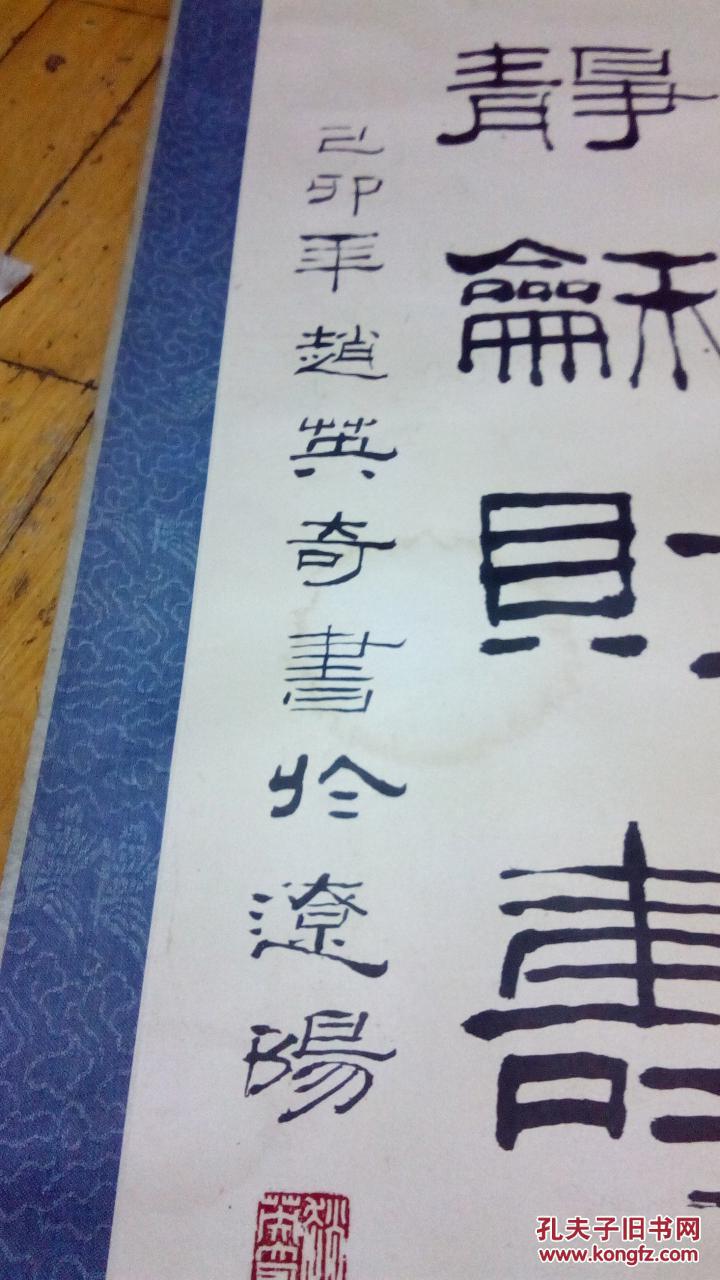 靜龢財壽
己卯年趙英奇書於遼陽
孔夫子旧书网
www.kongfz.com